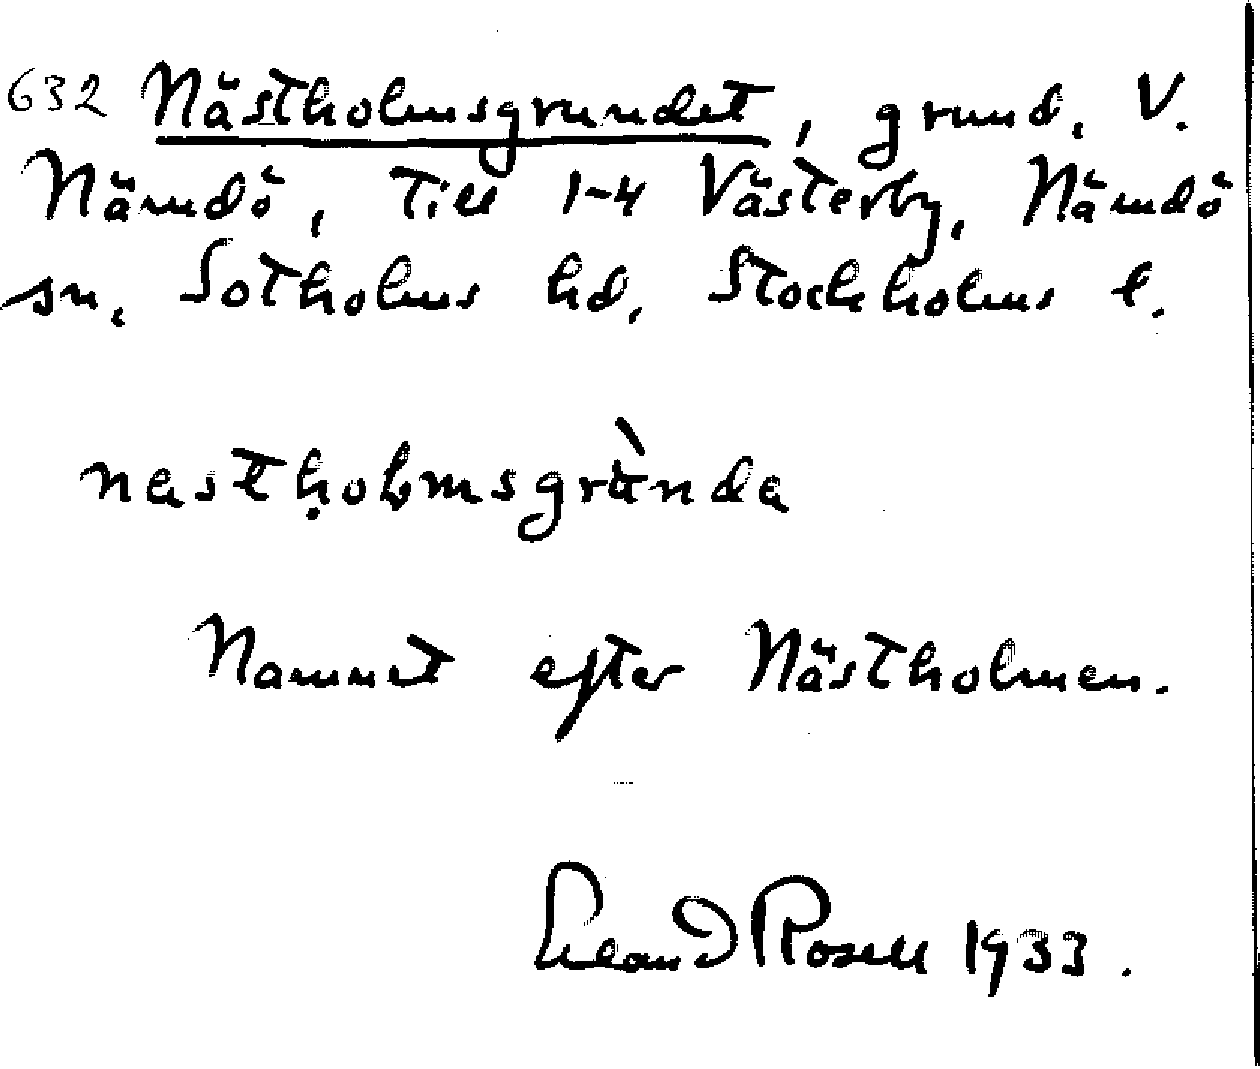 632 Nästholmsgrundet, grund, V.
Nämdö, till 1-4 Västerby, Nämdö
sn, Sotholms hd, Stockholms l.
nastholmsgrùnda
Namnet efter Nästholmen.
Erland Rosell 1933.